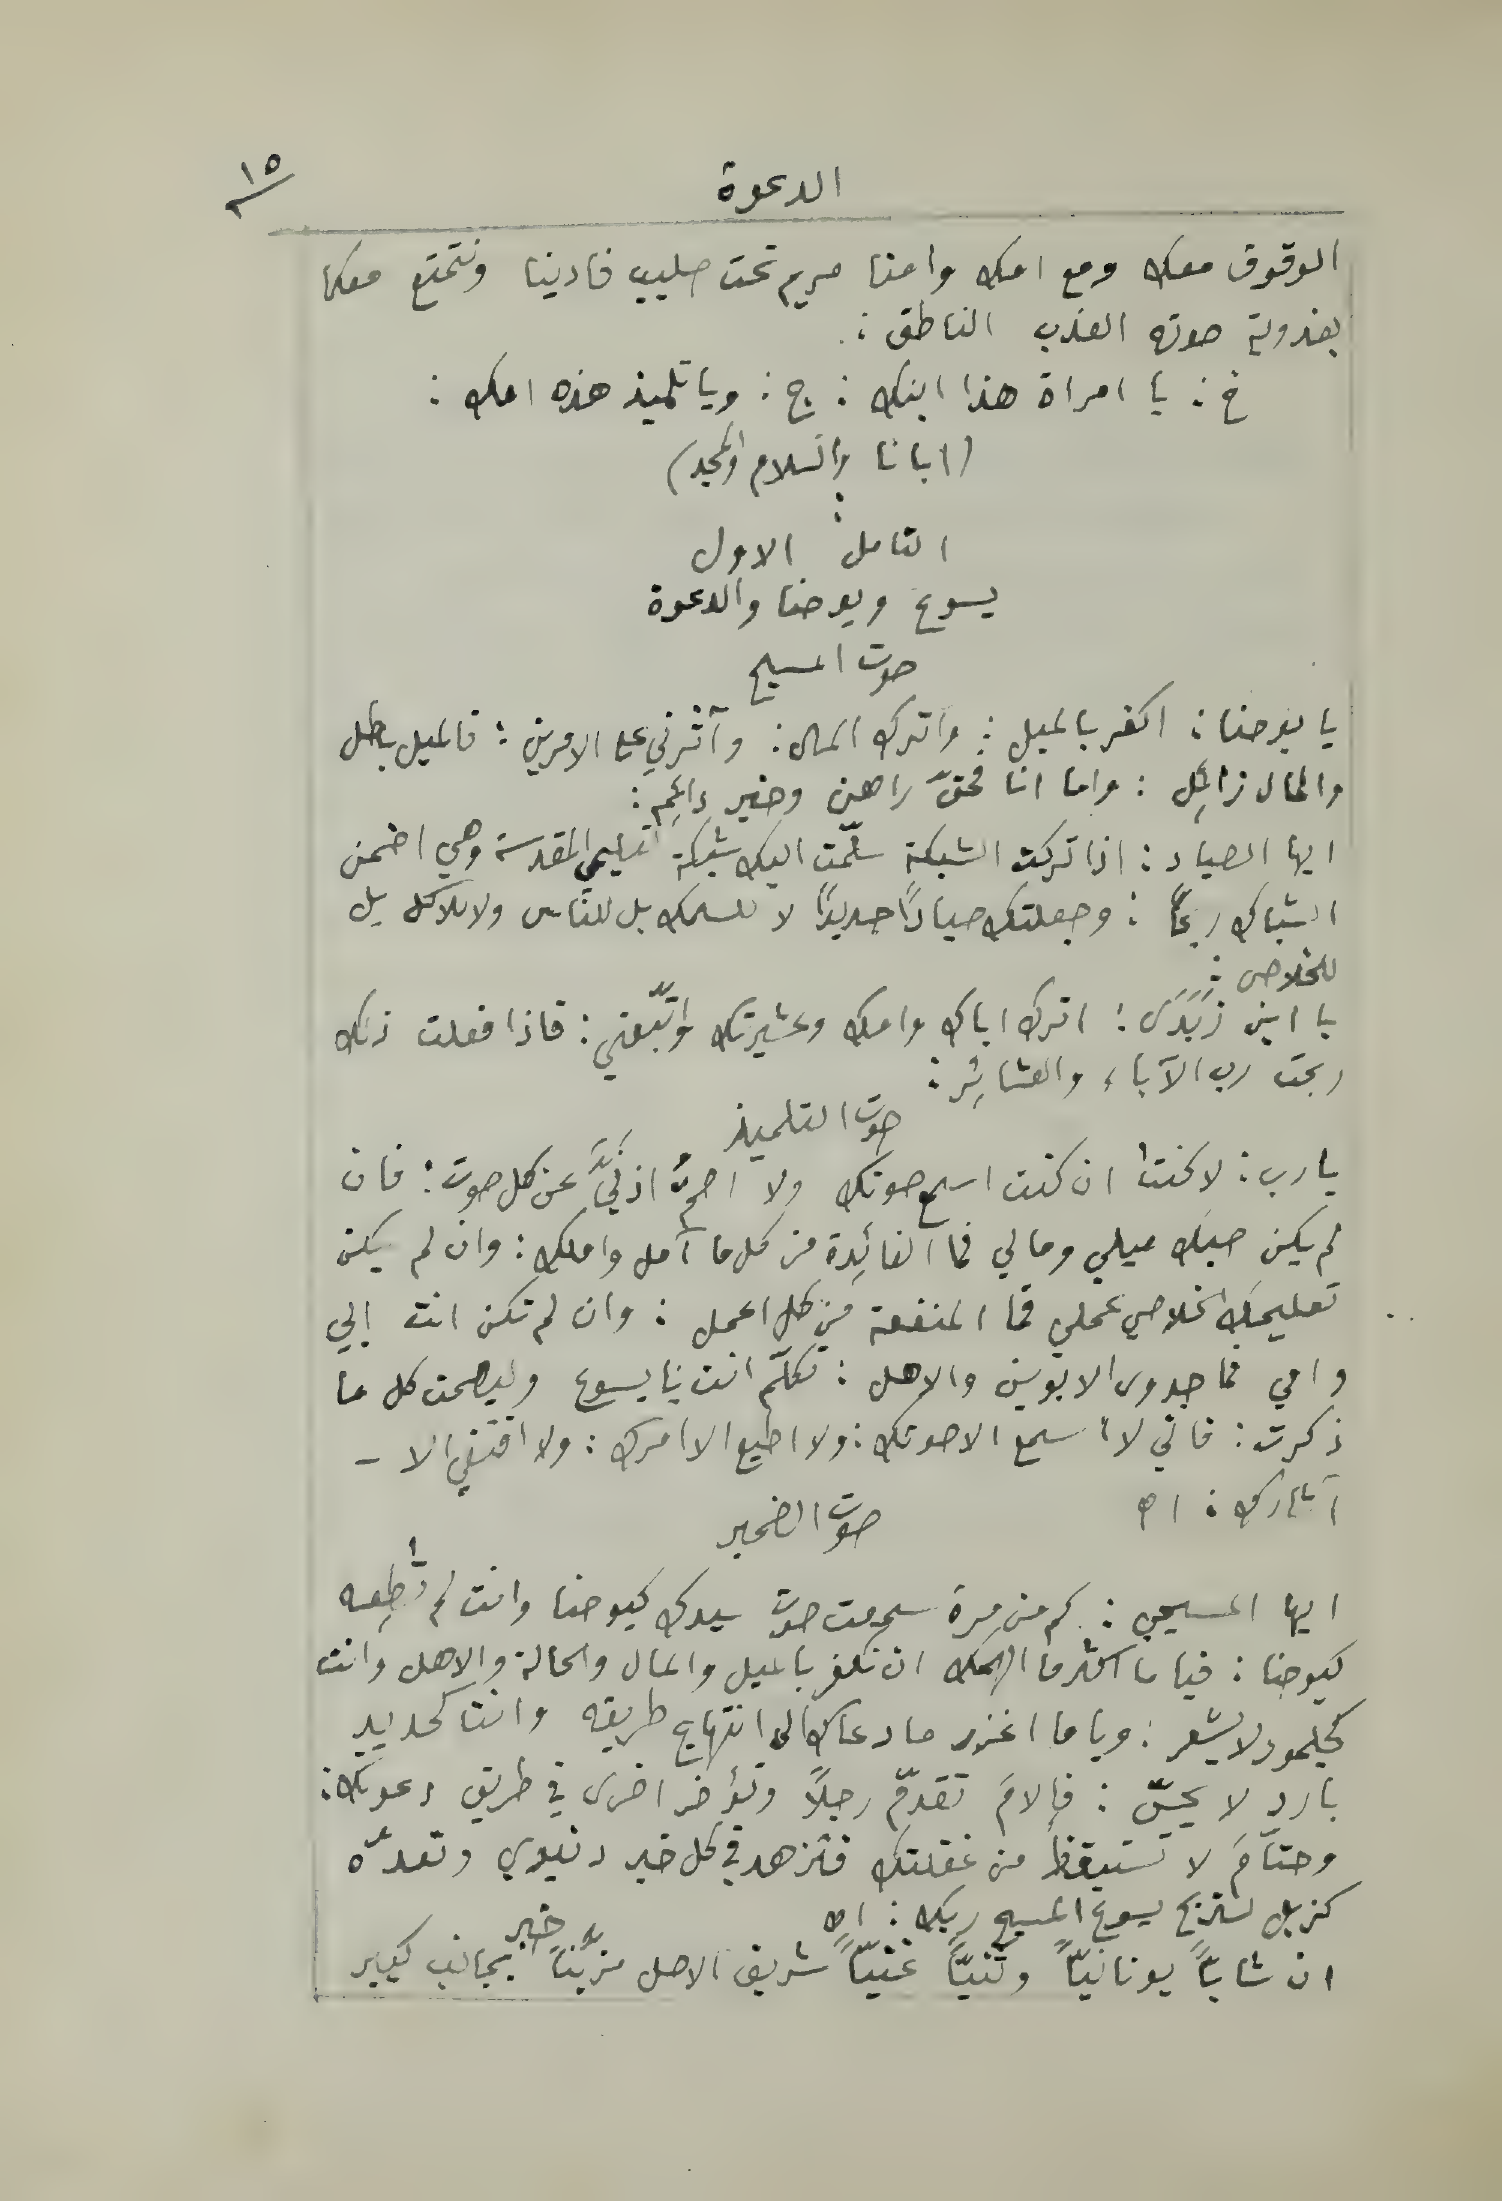 الدعوة
١٥
الوقوف معك ومع امك وامنا مريم تحت صليب فادينا ونتمتع معكما
بعذوبة صوته العذب الناطق :
خ : يا امراة هذا ابنك : ج : ويا تلميذ هذه امك :
(ابانا والسلام والمجد)
التامل الاول
يسوع ويوحنا والدعوة
صوت المسيح
يا يوحنا : اكفر بالميل : واترك المال : وآثرني على الامرين : فالميل باطل
والمال زائل : واما انا فحقّ راهن وخير دائم :
ايها الصياد : اذا تركت الشبكة سلّمت اليك شبكة تعليمي المقدسة وهي اضمن
الشباك ربحًا : وجعلتك صيادًا جديدًا لا للسمك بل للناس ولا للاكل بل
للخلاص :
يا ابن زَبَدَى : اترك اباك وامك وعشيرتك واتّبعني : فاذا فعلت ذلك
ربحت رب الآباء والعشائر :
صوت التلميذ
يا رب : لا كنت ان كنت اسمع صوتك ولا اصمُّ اذنيَّ عن كل صوت : فان
لم يكن حبك ميلي ومالي فما الفائدة من كل ما آمل واملك : وان لم يكن
تعليمك الخلاصي عملي فما المنفعة من كل اعمل : وان لم تكن انت ابي
وامي فما جدوى الابوين والاهل : تكلّم انت يا يسوع وليصمت كل ما
ذكرت : فاني لا اسمع الا صوتك : ولا اطيع الا امرك : ولا اقتفي الا -
آثارك : اه
صوت الضمير
ايها المسيحي : كم من مرة سمعت صوت سيدك كيوحنا وانت لم تُطِعه
كيوحنا : فيا ما اكثر ما الهمك ان تكفر بالميل والمال والحالة والاهل وانت
كجلمود لا يشعر : ويا ما اغزر ما دعاك الى انتهاج طريقه وانت كحديد
بارد لا يحسّ : فإلامَ تقدّم رجلًا وتؤخر اخرى في طريق دعوتك :
وحتّامَ لا تستيقظ من غفلتك فتزهد في كل خير دنيوي وتعدّه
كزبل لتربح يسوع المسيح ربك : اه
خبر
ان شابًّا يونانيًّا وثنيًّا غنيًّا شريف الاصل مزيّنًا بجانب كبير